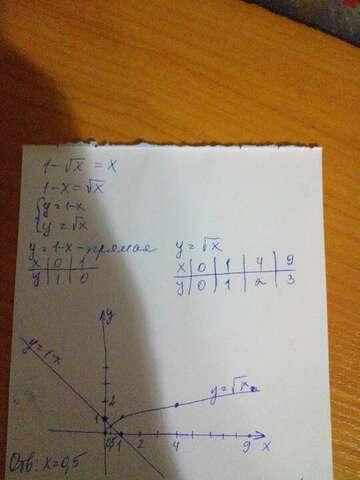 1-√x = x
1-x = √x
{y = 1-x
{y = √x
y = 1-x - прямая
x | 0 | 1
y | 1 | 0
y = √x
x | 0 | 1 | 4 | 9
y | 0 | 1 | 2 | 3
y
y=1-x
y=√x
2
1
0,5 1 2 4 9 x
Отв: x=0,5